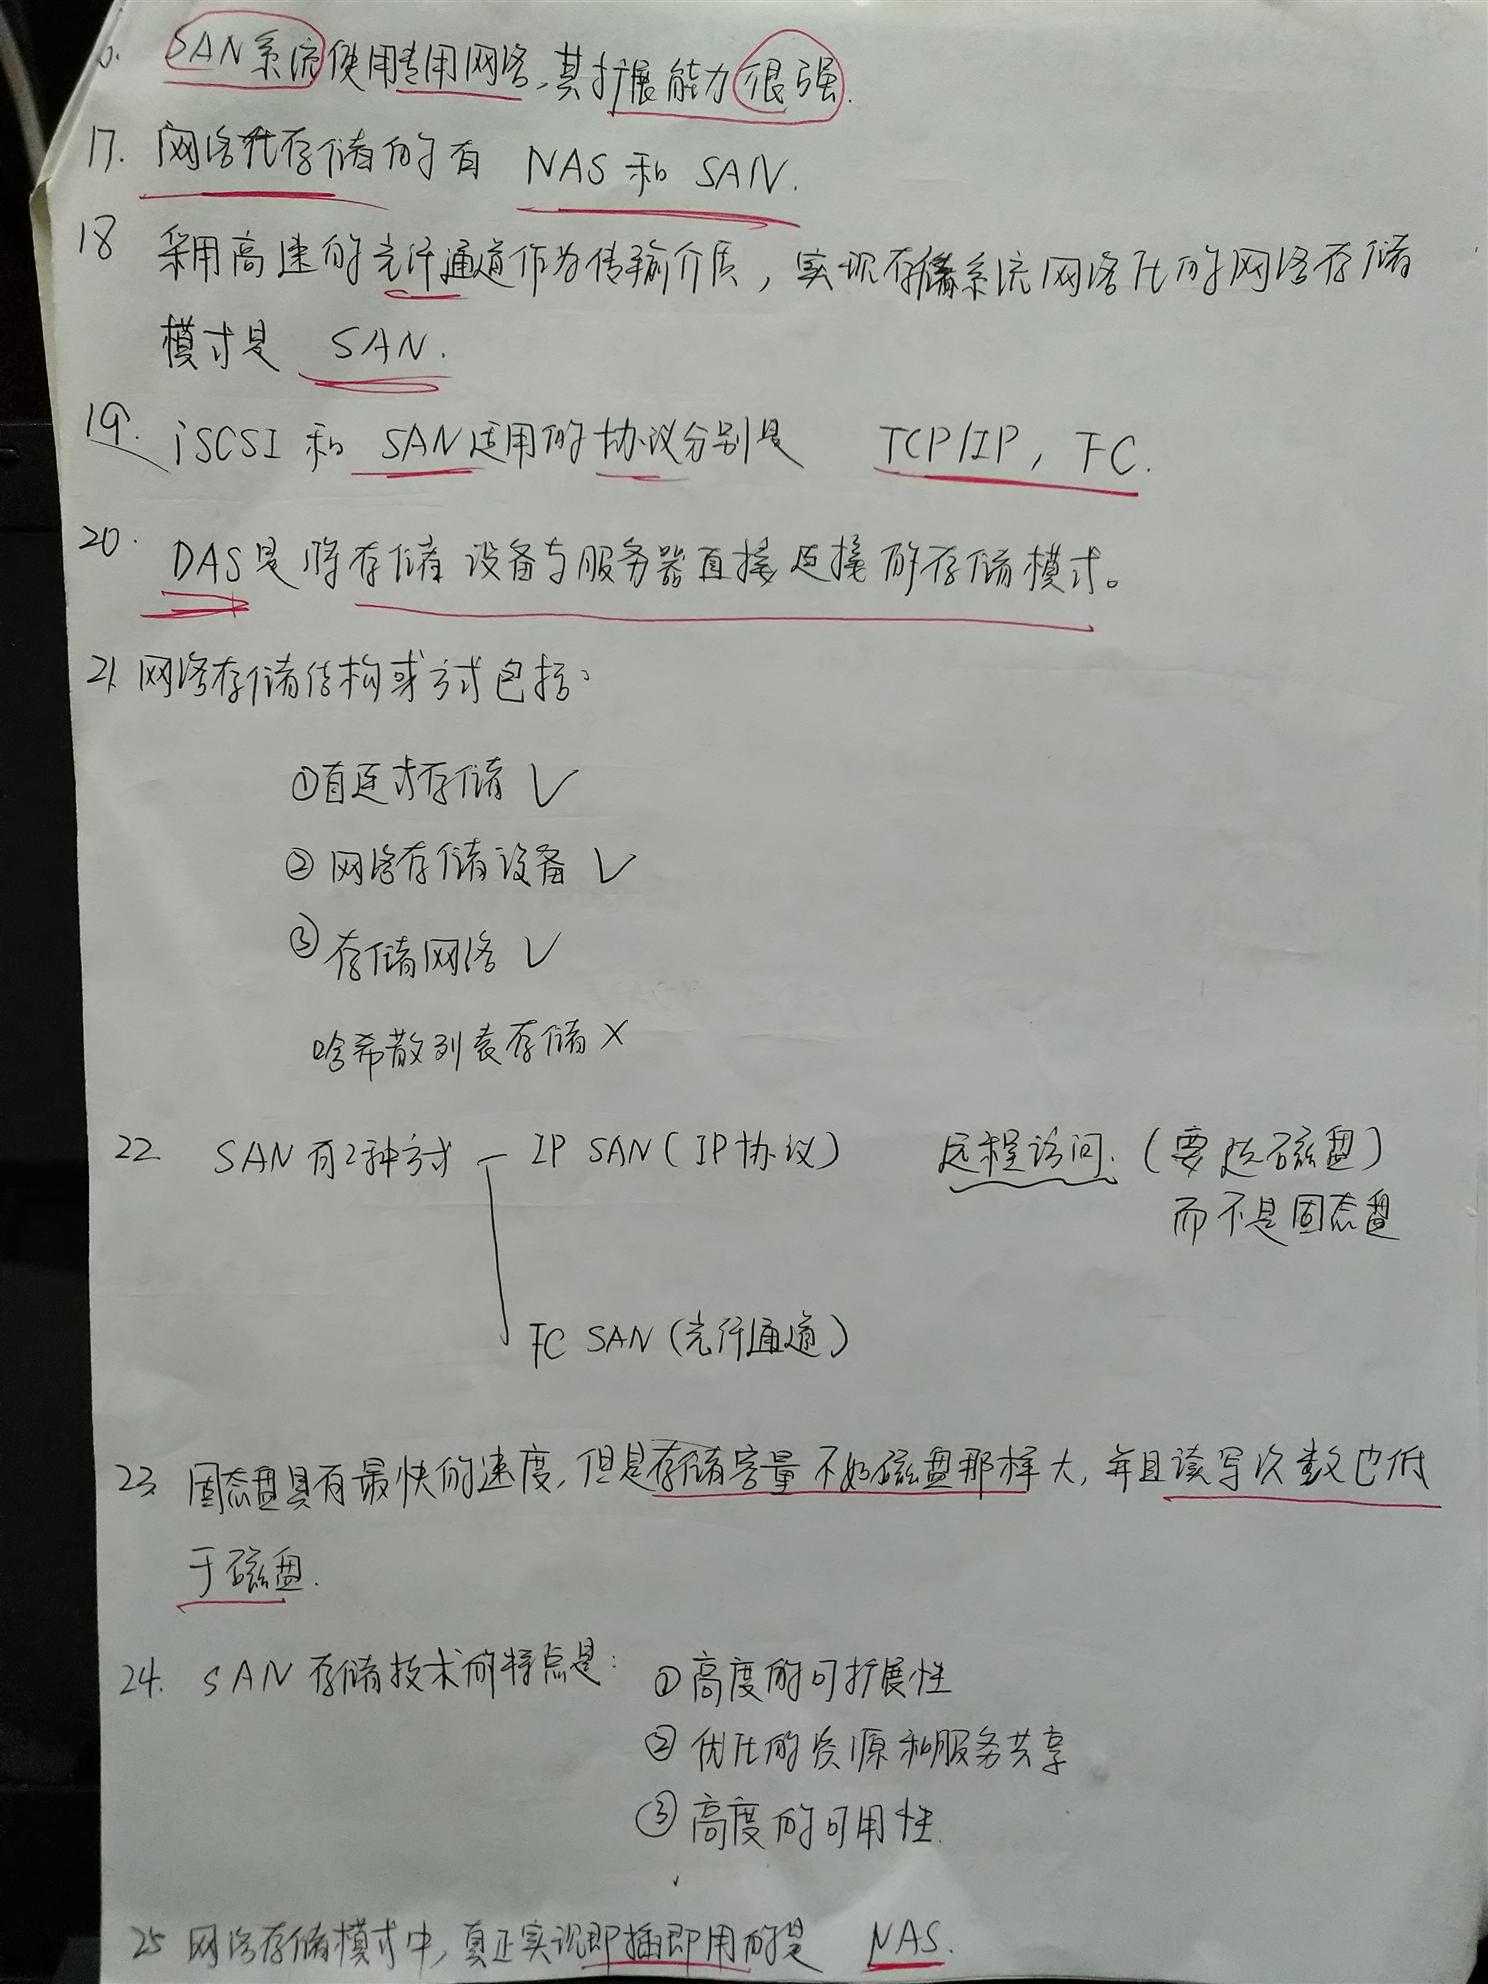 SAN系统使用专用网络,其扩展能力很强.
17. 网络化存储的有 NAS 和 SAN.
18 采用高速的光纤通道作为传输介质,实现存储系统网络化的网络存储
模式是 SAN.
19. iSCSI 和 SAN适用的协议分别是 TCP/IP, FC.
20. DAS是将存储设备与服务器直接连接的存储模式。
21 网络存储结构或方式包括:
①直连式存储 √
② 网络存储设备 √
③ 存储网络 √
哈希散列表存储 ×
22 SAN有2种方式 IP SAN (IP协议) 远程访问. (要选磁盘)
而不是固态盘
FC SAN (光纤通道)
23 固态盘具有最快的速度,但是存储容量不如磁盘那样大,并且读写次数也低
于磁盘.
24. SAN 存储技术的特点是: ①高度的可扩展性
② 优化的资源和服务共享
③ 高度的可用性.
25 网络存储模式中,真正实现即插即用的是 NAS.